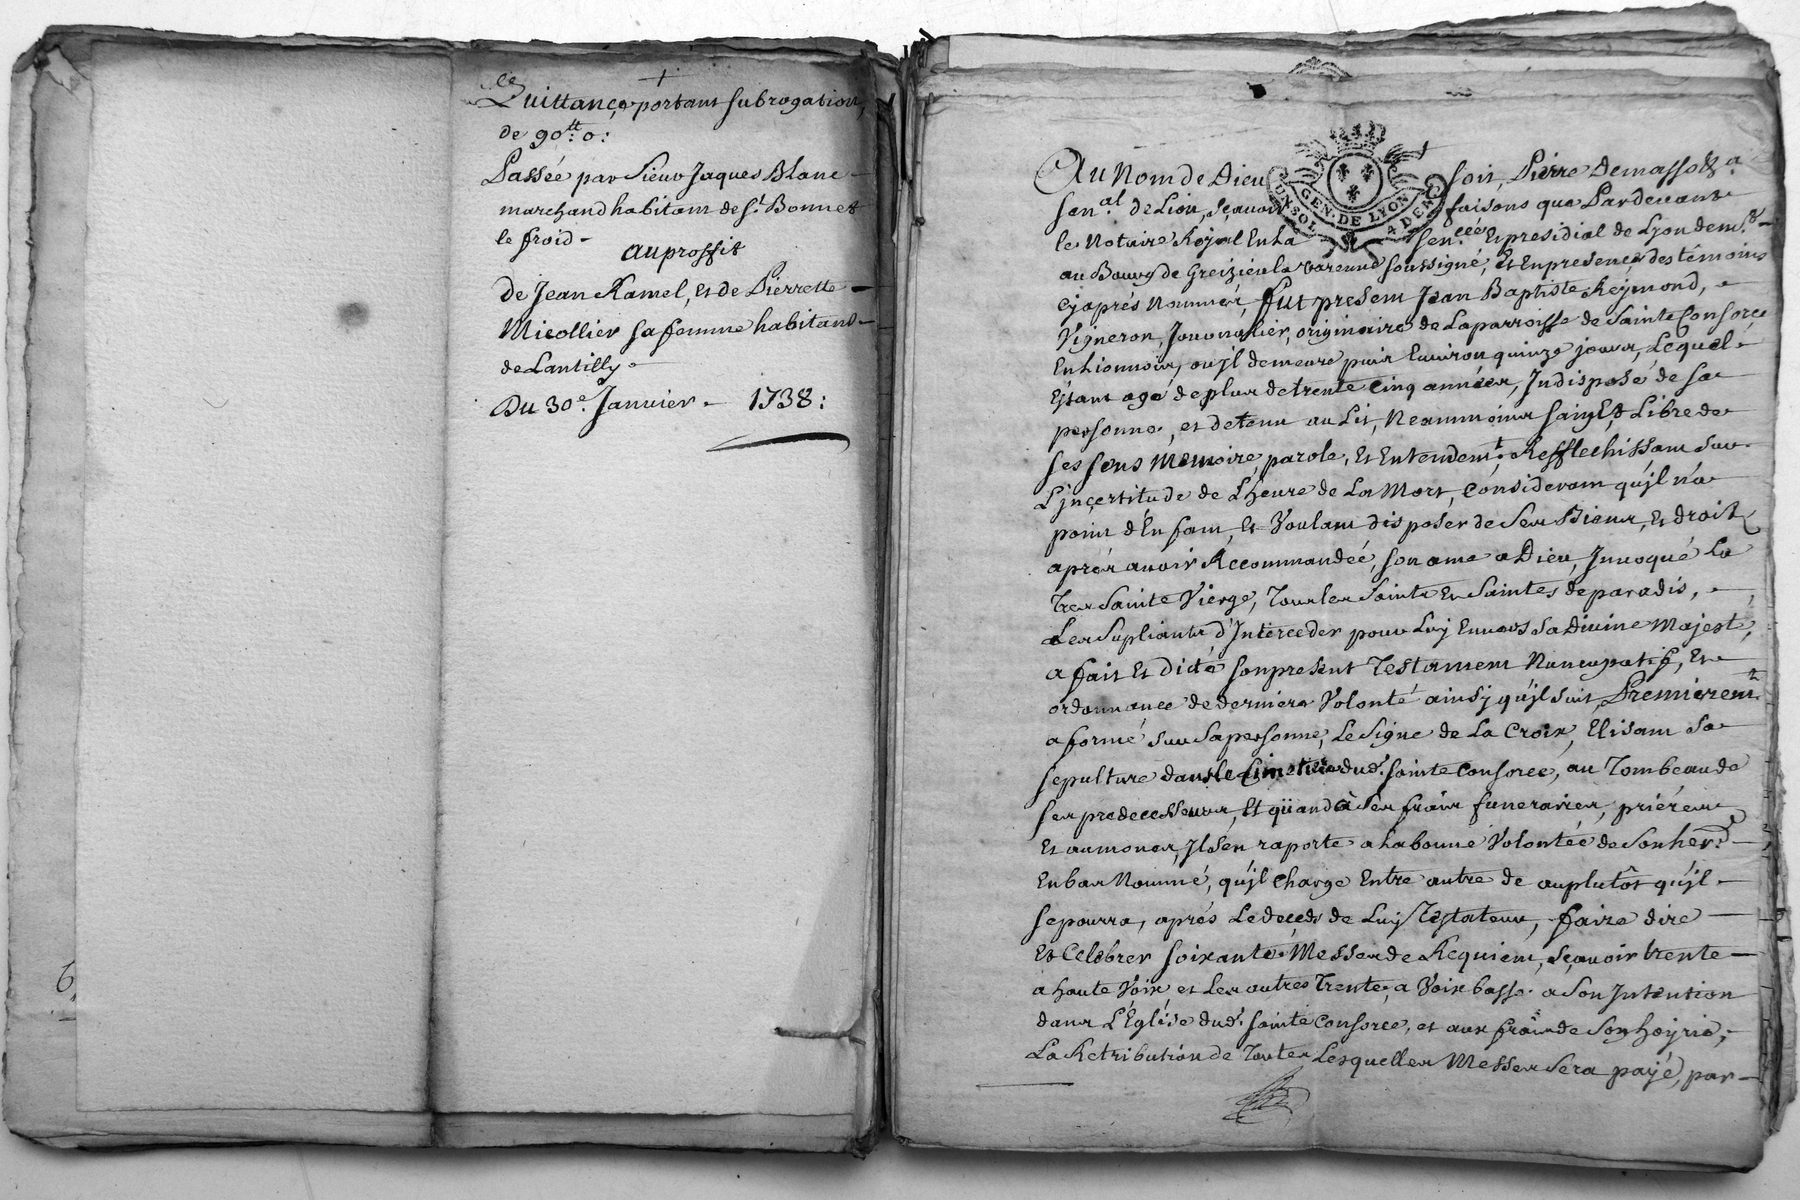 Quittance portant subrogation,
de 90tt 0:
Passée par Sieur Jaques Blanc
marchand habitant de St. Bonnet
le froid
au proffit
de Jean Ramel, et de Pierrette
Micollier sa femme habitans
de Lantilly
Du 30e. Janvier 1738:
Au Nom de Dieu soit, Pierre Demasso &a.
sen.al de Lion, sçavoir faisons que Pardevant
le Notaire Royal En La sen.cée Et presidial de Lyon dem.t
au Bourg de Greizieu la varenne soussigné, Et En presence des témoins
cy aprés Nommés, fut present Jean Baptiste Reymond,
Vigneron, Journalier, originaire de La parroisse de Sainte Consorce
En Lionnois, ou jl demeure puis Environ quinze jours, Lequel
Estant agé de plus de trente Cinq années, Indisposé de sa
personne, et detenu au Lit, Neanmoins sain Et Libre de
ses sens Memoire, parole, Et Entendem.t, Refflechissant sur
L'jncertitude de L'heure de La Mort, Considerant qu'jl n'a
point d'Enfant, Et Voulant disposer de Ses Biens, Et droits
aprés avoir Recommandée, son ame a Dieu, Jnvoqué La
Tres Sainte Vierge, Tous les Saints Et Saintes de paradis,
Les Supliants d'Interceder pour Luy Envers Sa Divine Majesté,
a fait Et Dicté son present Testament Nuncupatif, Et
ordonnance de derniere Volonté ainsy qu'jl suit, Premierem.t
a formé sur Sa personne, Le Signe de La Croix, Elisant Sa
sepulture dans le Cimetiere dud.t Sainte Consorce, au Tombeau de
ses predecesseurs, Et quand à Ses frais funeraires, priéres
Et aumones, Jl s'en raporte a La bonne Volontée de Son her.er
En bas Nommé, qu'jl Charge Entre autre de au plutôt qu'jl
se pourra, aprés Le deceds de Luy Testateur, faire dire
Et Celebrer soixante Messes de Requiem, sçavoir trente
a haute Voix et Les autres Trente, a Voix basse a Son Jntention
dans L'Église dud.t Sainte Consorce, et aux frais de Son hoyrie,
La Retribution de Toutes Lesquelles Messes Sera payé, par
GEN. DE LYON